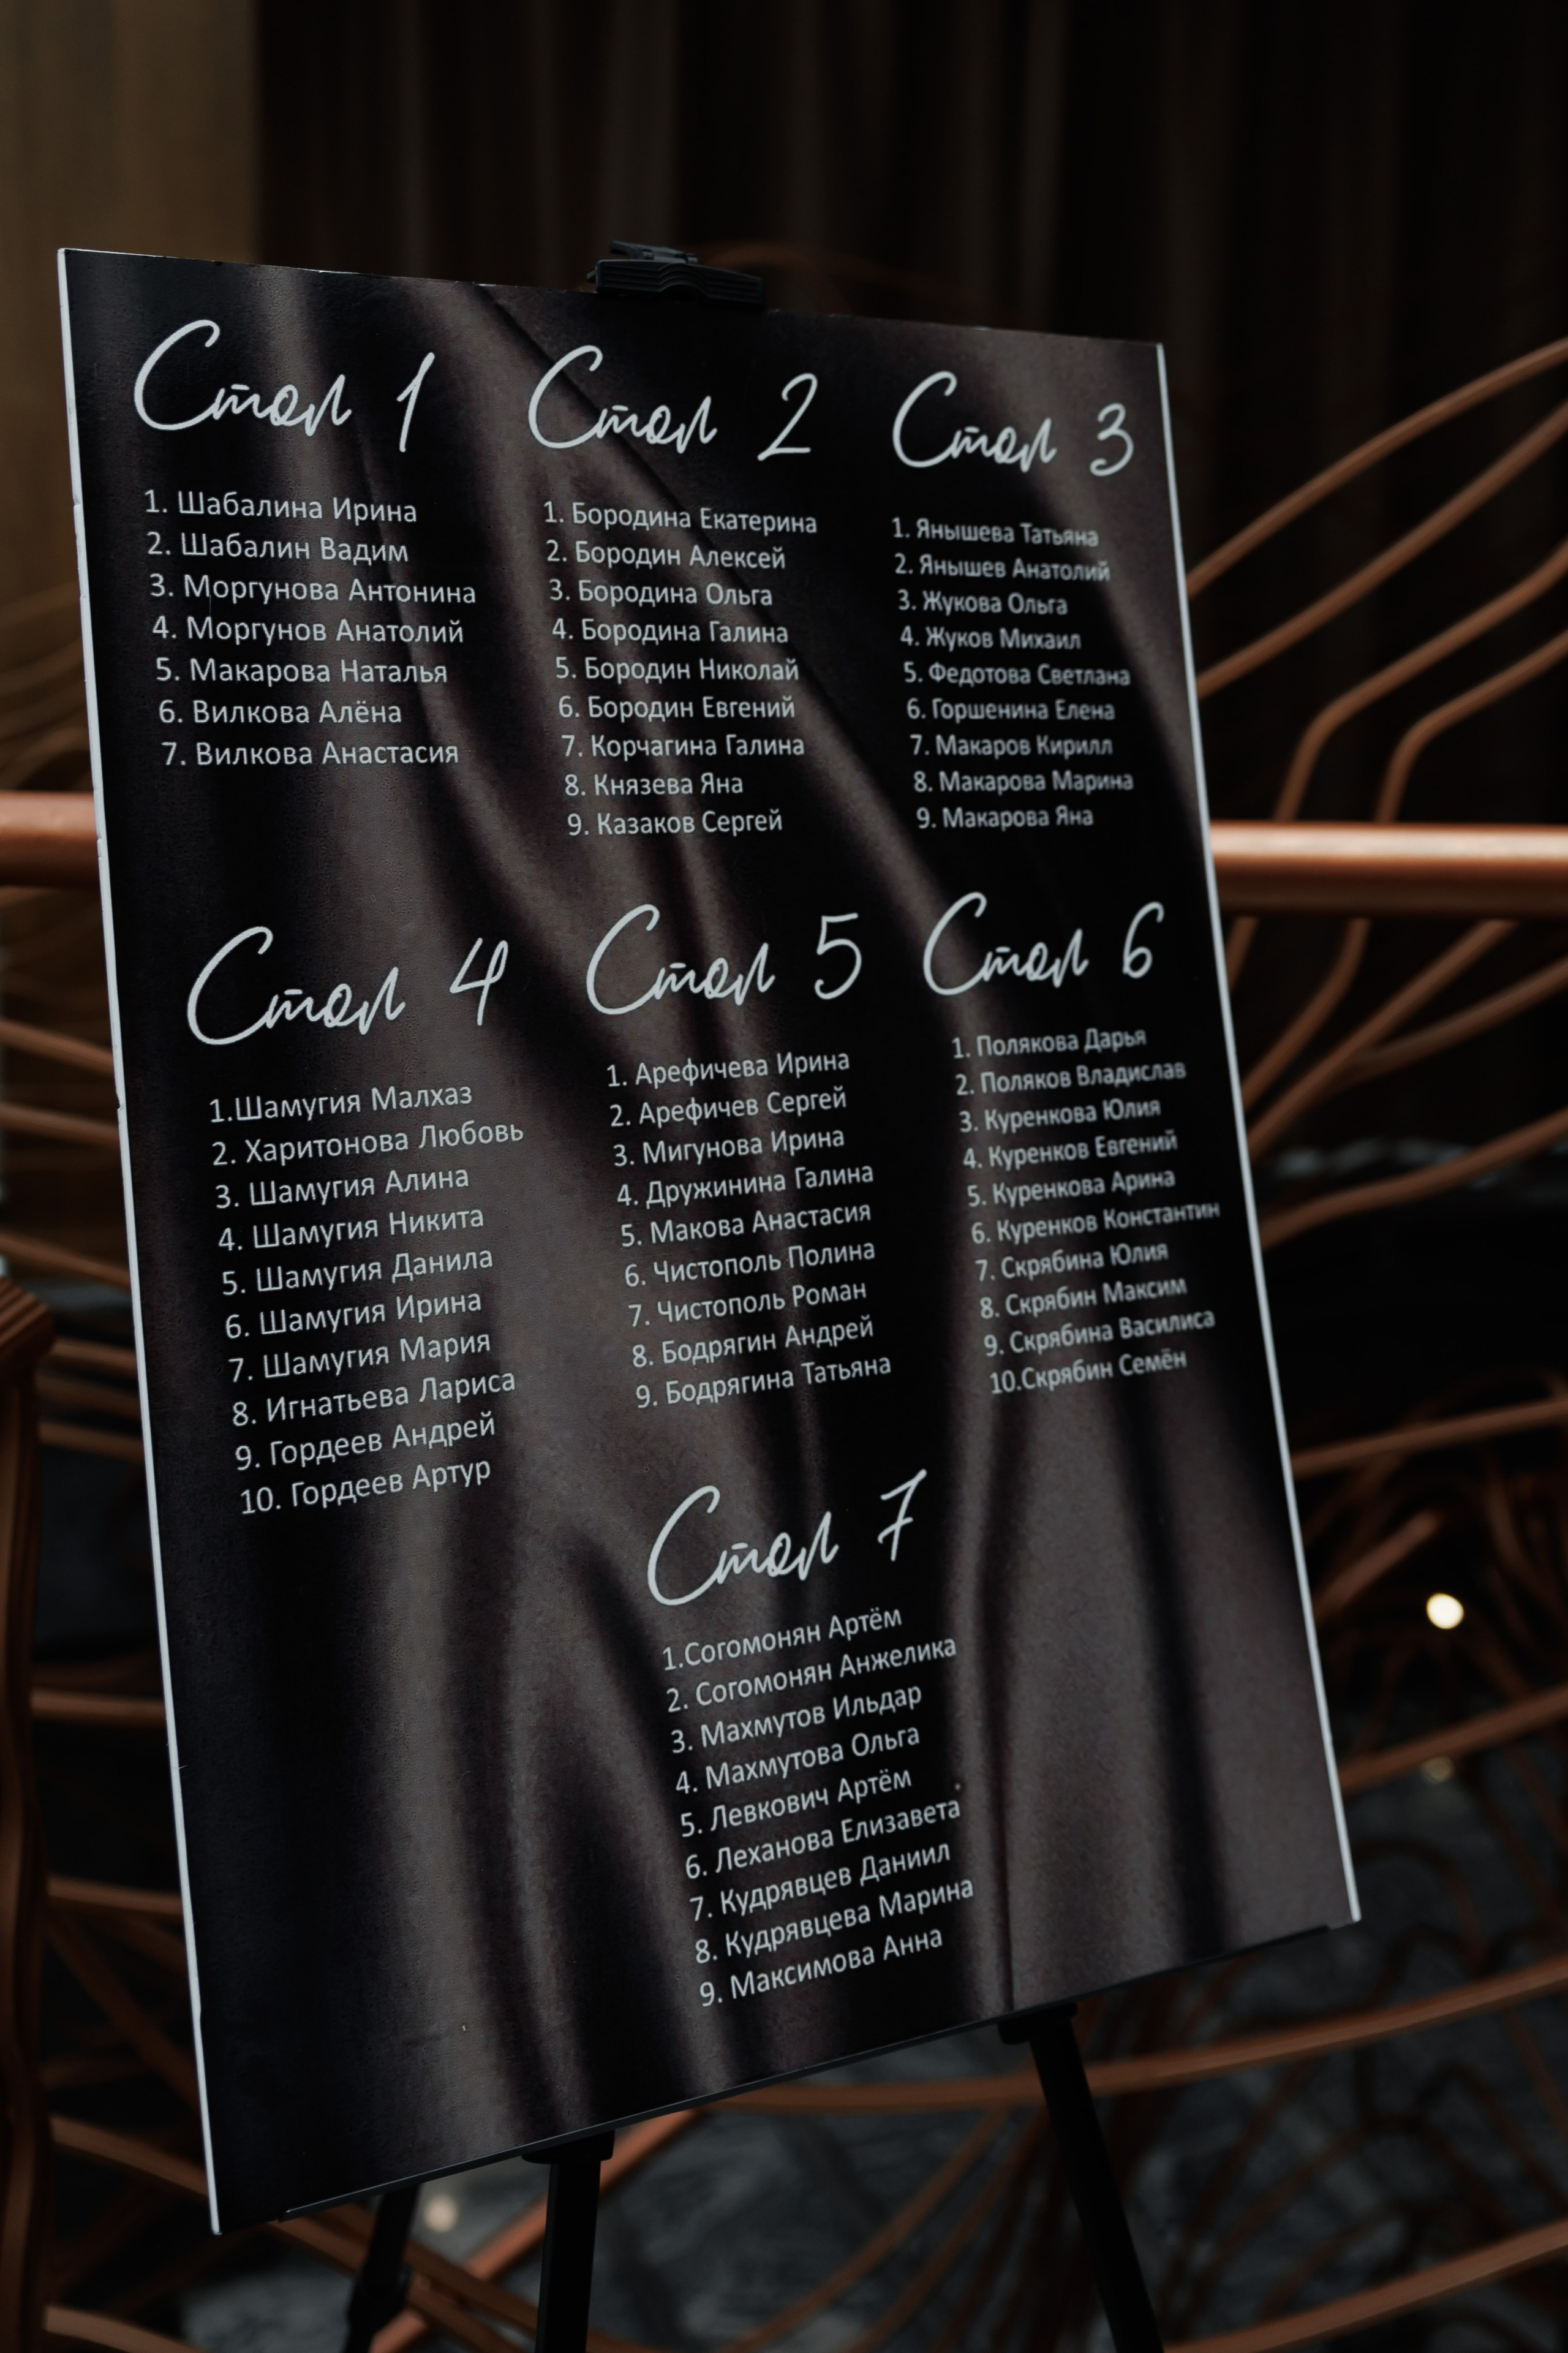 Стол 1
1. Шабалина Ирина
2. Шабалин Вадим
3. Моргунова Антонина
4. Моргунов Анатолий
5. Макарова Наталья
6. Вилкова Алёна
7. Вилкова Анастасия
Стол 2
1. Бородина Екатерина
2. Бородин Алексей
3. Бородина Ольга
4. Бородина Галина
5. Бородин Николай
6. Бородин Евгений
7. Корчагина Галина
8. Князева Яна
9. Казаков Сергей
Стол 3
1. Янышева Татьяна
2. Янышев Анатолий
3. Жукова Ольга
4. Жуков Михаил
5. Федотова Светлана
6. Горшенина Елена
7. Макаров Кирилл
8. Макарова Марина
9. Макарова Яна
Стол 4
1.Шамугия Малхаз
2. Харитонова Любовь
3. Шамугия Алина
4. Шамугия Никита
5. Шамугия Данила
6. Шамугия Ирина
7. Шамугия Мария
8. Игнатьева Лариса
9. Гордеев Андрей
10. Гордеев Артур
Стол 5
1. Арефичева Ирина
2. Арефичев Сергей
3. Мигунова Ирина
4. Дружинина Галина
5. Макова Анастасия
6. Чистополь Полина
7. Чистополь Роман
8. Бодрягин Андрей
9. Бодрягина Татьяна
Стол 6
1. Полякова Дарья
2. Поляков Владислав
3. Куренкова Юлия
4. Куренков Евгений
5. Куренкова Арина
6. Куренков Константин
7. Скрябина Юлия
8. Скрябин Максим
9. Скрябина Василиса
10.Скрябин Семён
Стол 7
1.Согомонян Артём
2. Согомонян Анжелика
3. Махмутов Ильдар
4. Махмутова Ольга
5. Левкович Артём
6. Леханова Елизавета
7. Кудрявцев Даниил
8. Кудрявцева Марина
9. Максимова Анна